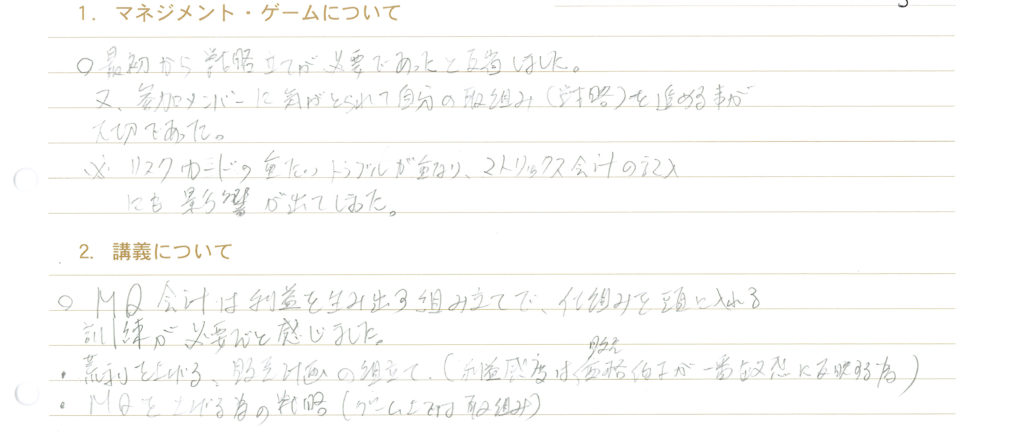 1. マネジメント・ゲームについて
○ 最初から戦略立てが必要であったと反省しました。
又、参加メンバーに気がとられて自分の取組み(戦略)を進める事が
大切であった。
※ リスクカードの重たいトラブルが重なり、マトリックス会計の記入
にも影響が出てしまった。
2. 講義について
○ MQ会計は利益を生み出す組み立てで、仕組みを頭に入れる
訓練が必要だと感じました。
・荒利を上げる、販売計画の組立て、(利益感度は販売価格値下が一番敏感に反映する為)
・MQを上げる為の戦略(ゲーム上では取組み)